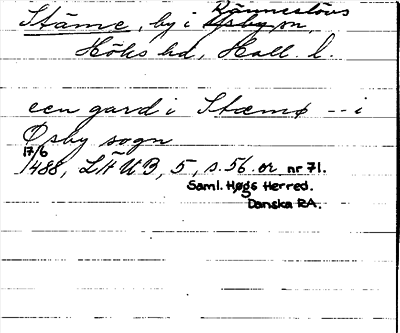 Stäme, by i Ränneslövs Ysby sn,
Höks hd, Hall. l.
een gard i Stæmø -- i
Øsby sogn
17/6 1488, LÄUB, 5, s. 56 or nr 71.
Saml. Høgs Herred.
Danska RA.